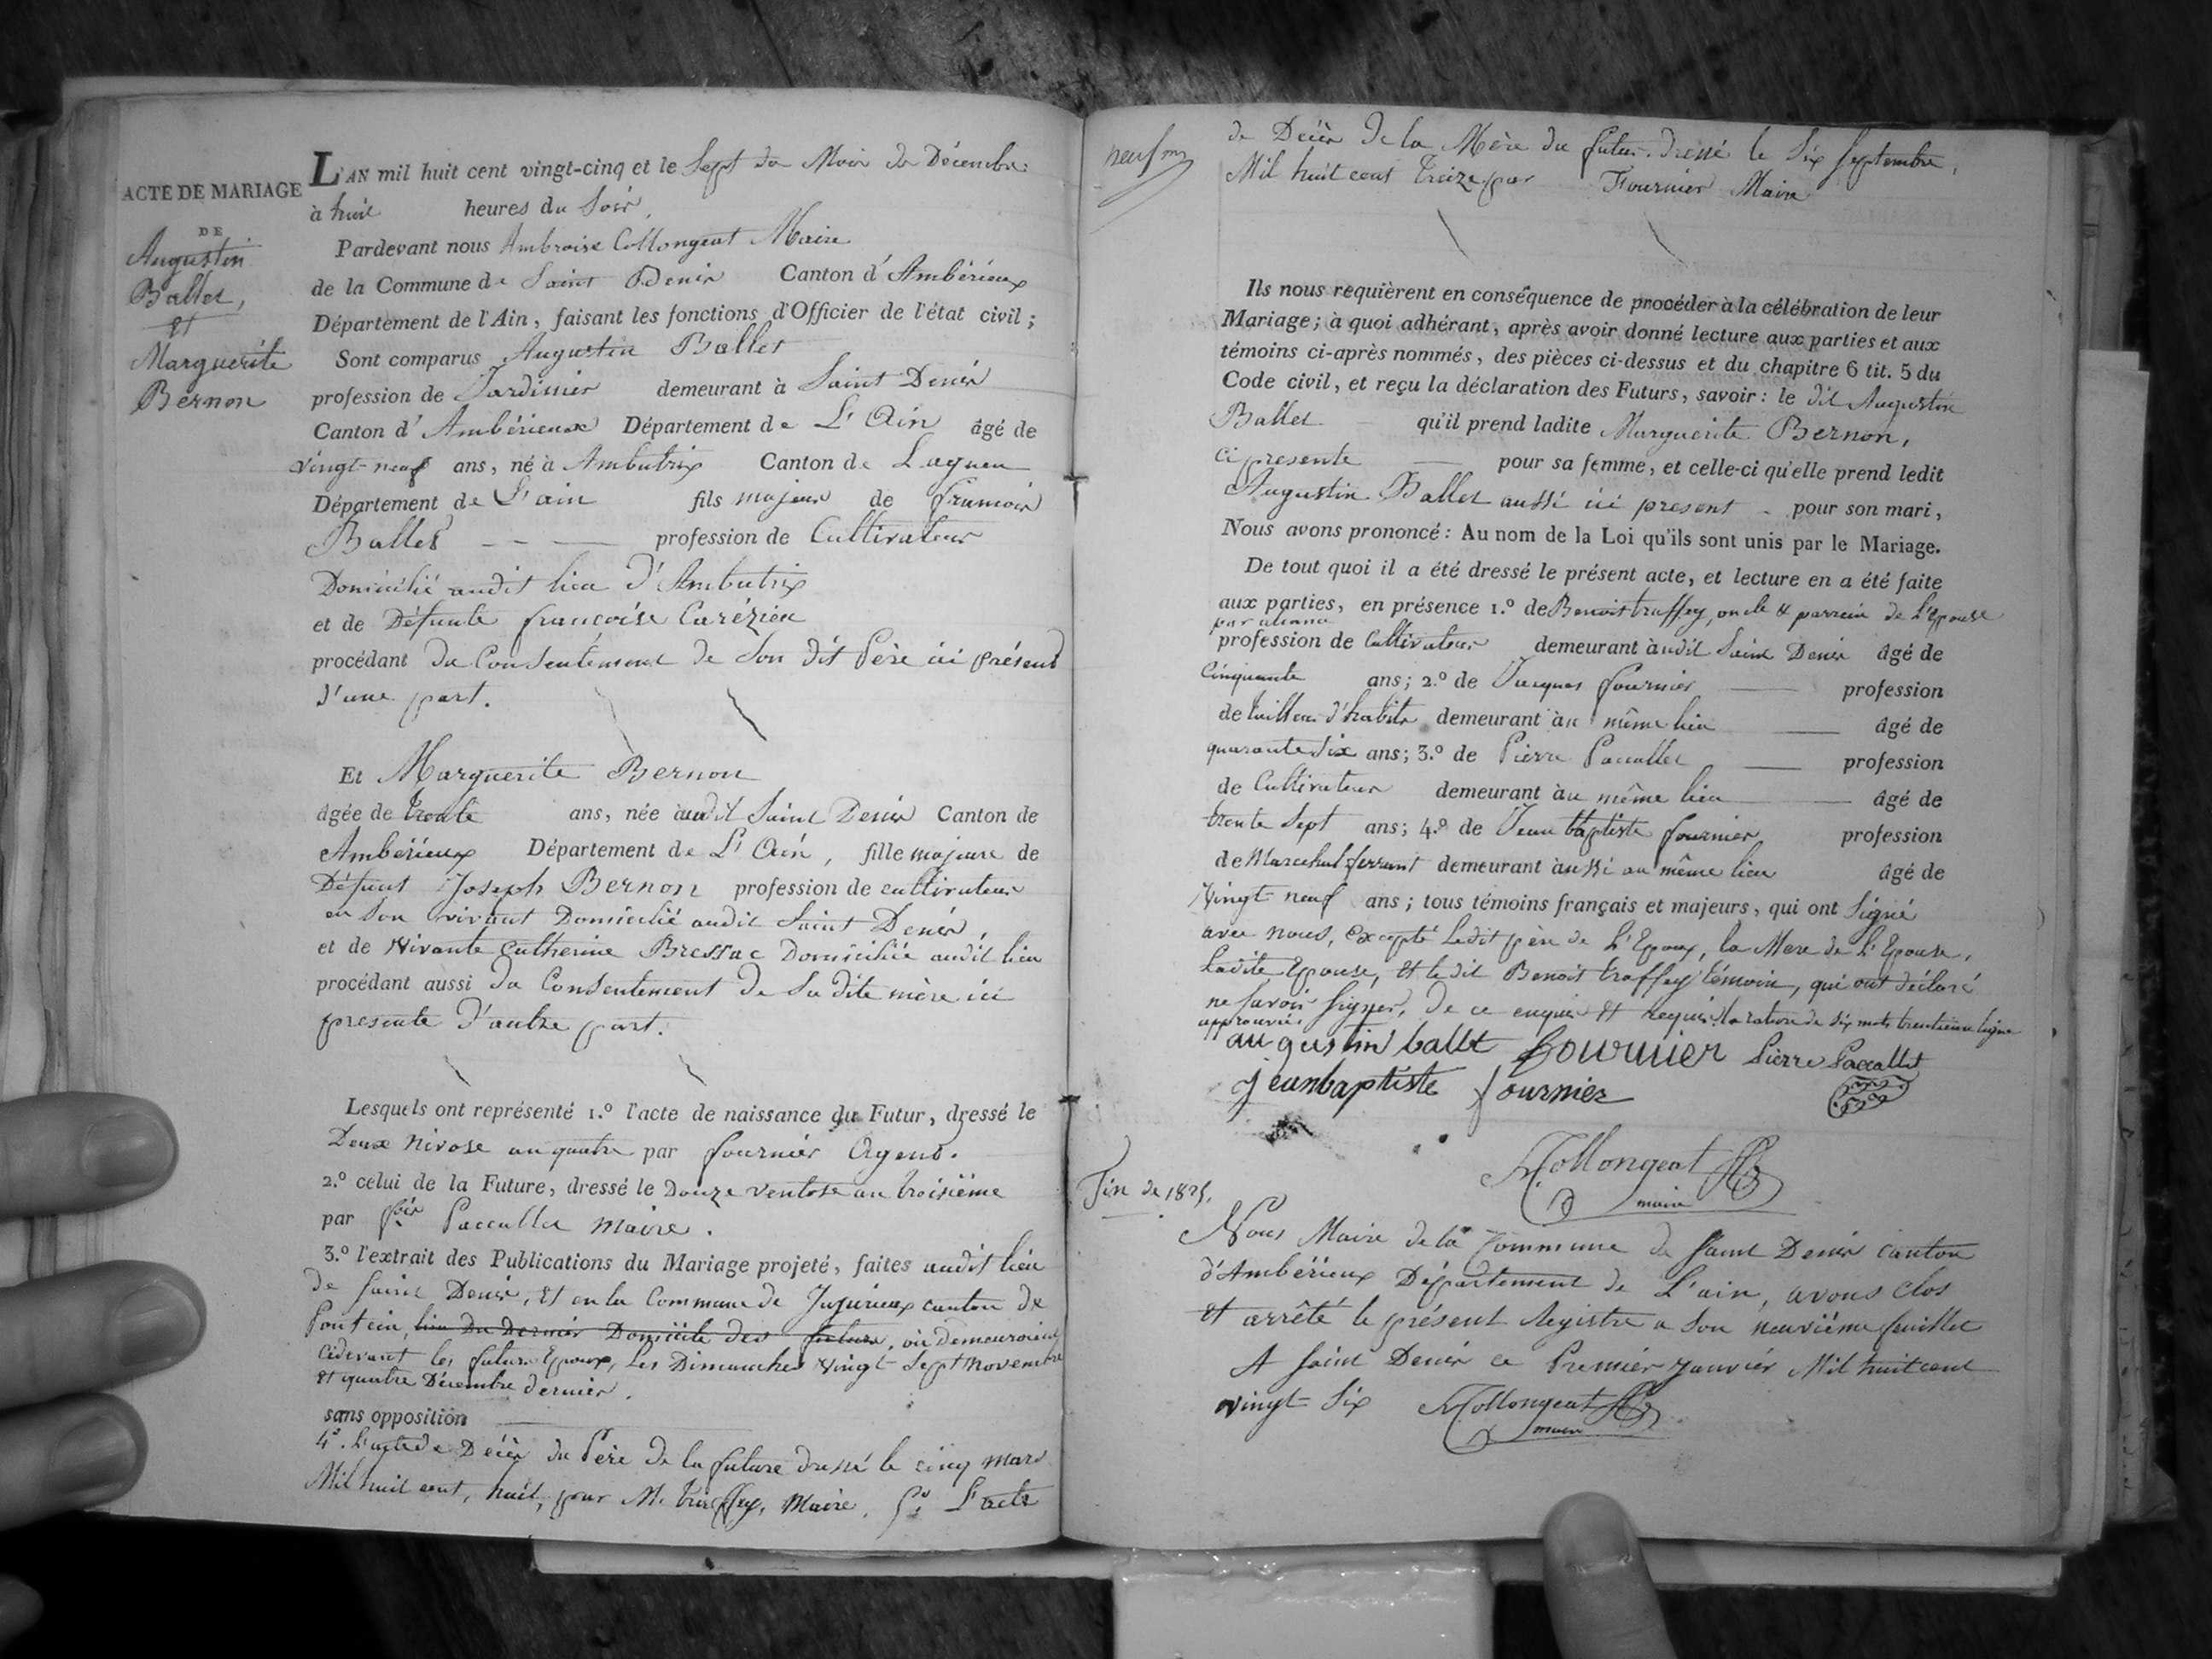 ACTE DE MARIAGE
DE
Augustin
Ballet,
et
Marguerite
Bernon
L'AN mil huit cent vingt-cinq et le Sept du Mois de Décembre
à huit heures du Soir,
Pardevant nous Ambroise Collongeat Maire
de la Commune de Saint Denis Canton d'Ambérieux
Département de l'Ain, faisant les fonctions d'Officier de l'état civil;
Sont comparus Augustin Ballet
profession de Jardinier demeurant à Saint Denis
Canton d'Ambérieux Département de L'Ain âgé de
vingt-neuf ans, né à Ambutrix Canton de Lagneu
Département de L'ain fils majeur de francois
Ballet profession de Cultivateur
Domicilié audit lieu d'Ambutrix
et de Défunte francoise Carézieu
procédant du Consentement de Son dit Père ici présent
d'une part.
Et Marguerite Bernon
âgée de trente ans, née audit Saint Denis Canton de
Ambérieux Département de L'Ain, fille majeure de
Défunt Joseph Bernon profession de cultivateur
en son vivant Domicilié audit Saint Denis,
et de Vivante Catherine Bressac Domiciliée audit lieu
procédant aussi du Consentement de Sa dite mère ici
presente d'autre part.
Lesquels ont représenté 1.º l'acte de naissance du Futur, dressé le
Deux Nivose an quatre par fournier Agent.
2.º celui de la Future, dressé le Douze ventose an troisième
par fois Paccallet maire.
3.º l'extrait des Publications du Mariage projeté, faites audit lieu
de Saint Denis, et en la Commune de Jujurieux canton de
Pontcin, lieu Du Dernier Domicile des future, où Demeuroient
cidevant les futurs Epoux, les Dimanches vingt-Sept Novembre
et quatre Décembre dernier.
sans opposition
4º. L'acte de Décès du Père de la future dressé le cinq mars
Mil huit cent, huit, par M. truffey, Maire. 5º L'acte
neuf
de Décès de la Mère du futur dressé le Six Septembre,
Mil huit cent treize par Fournier Maire
Ils nous requièrent en conséquence de procéder à la célébration de leur
Mariage; à quoi adhérant, après avoir donné lecture aux parties et aux
témoins ci-après nommés, des pièces ci-dessus et du chapitre 6 tit. 5 du
Code civil, et reçu la déclaration des Futurs, savoir: le dit Augustin
Ballet qu'il prend ladite Marguerite Bernon,
ci presente pour sa femme, et celle-ci qu'elle prend ledit
Augustin Ballet aussi ici present pour son mari,
Nous avons prononcé: Au nom de la Loi qu'ils sont unis par le Mariage.
De tout quoi il a été dressé le présent acte, et lecture en a été faite
aux parties, en présence 1.º de Benoit truffey, oncle & parrain de L'Epouse
par aliance
profession de Cultivateur demeurant audit Saint Denis âgé de
Cinquante ans; 2.º de Jacques fournier profession
de tailleur d'habits demeurant au même lieu âgé de
quarante six ans; 3.º de Pierre Paccallet profession
de Cultivateur demeurant au même lieu âgé de
trente Sept ans; 4.º de Jean baptiste fournier profession
de Marechal ferrant demeurant aussi au même lieu âgé de
Vingt-neuf ans; tous témoins français et majeurs, qui ont Signé
avec nous, excepté Ledit père de L'Epoux, la Mere de L'Epouse,
Ladite Epouse, et le dit Benoit truffey témoin, qui ont déclaré
ne savoir Signer, De ce enquis et requis. la rature de six mots trentième ligne
approuvée.
augustin ballet fournier Pierre Paccallet
jeanbaptiste fournier
Collongeat
maire
Fin de 1825.
Nous Maire de la Commune de Saint Denis canton
d'Ambérieux Département de L'ain, avons clos
et arrêté le présent Registre a Son neuvième feuillet
A Saint Denis ce Premier janvier Mil huit cent
vingt-Six Collongeat
maire